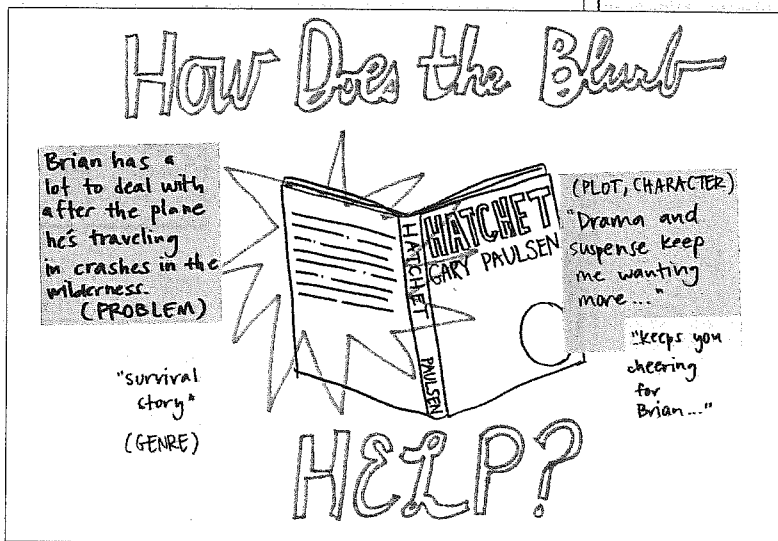 How Does the Blurb
Brian has a
lot to deal with
after the plane
he's traveling
in crashes in the
wilderness.
(PROBLEM)
"survival
story"
(GENRE)
HATCHET
GARY PAULSEN
HATCHET PAULSEN
(PLOT, CHARACTER)
"Drama and
suspense keep
me wanting
more..."
"keeps you
cheering
for
Brian..."
HELP?